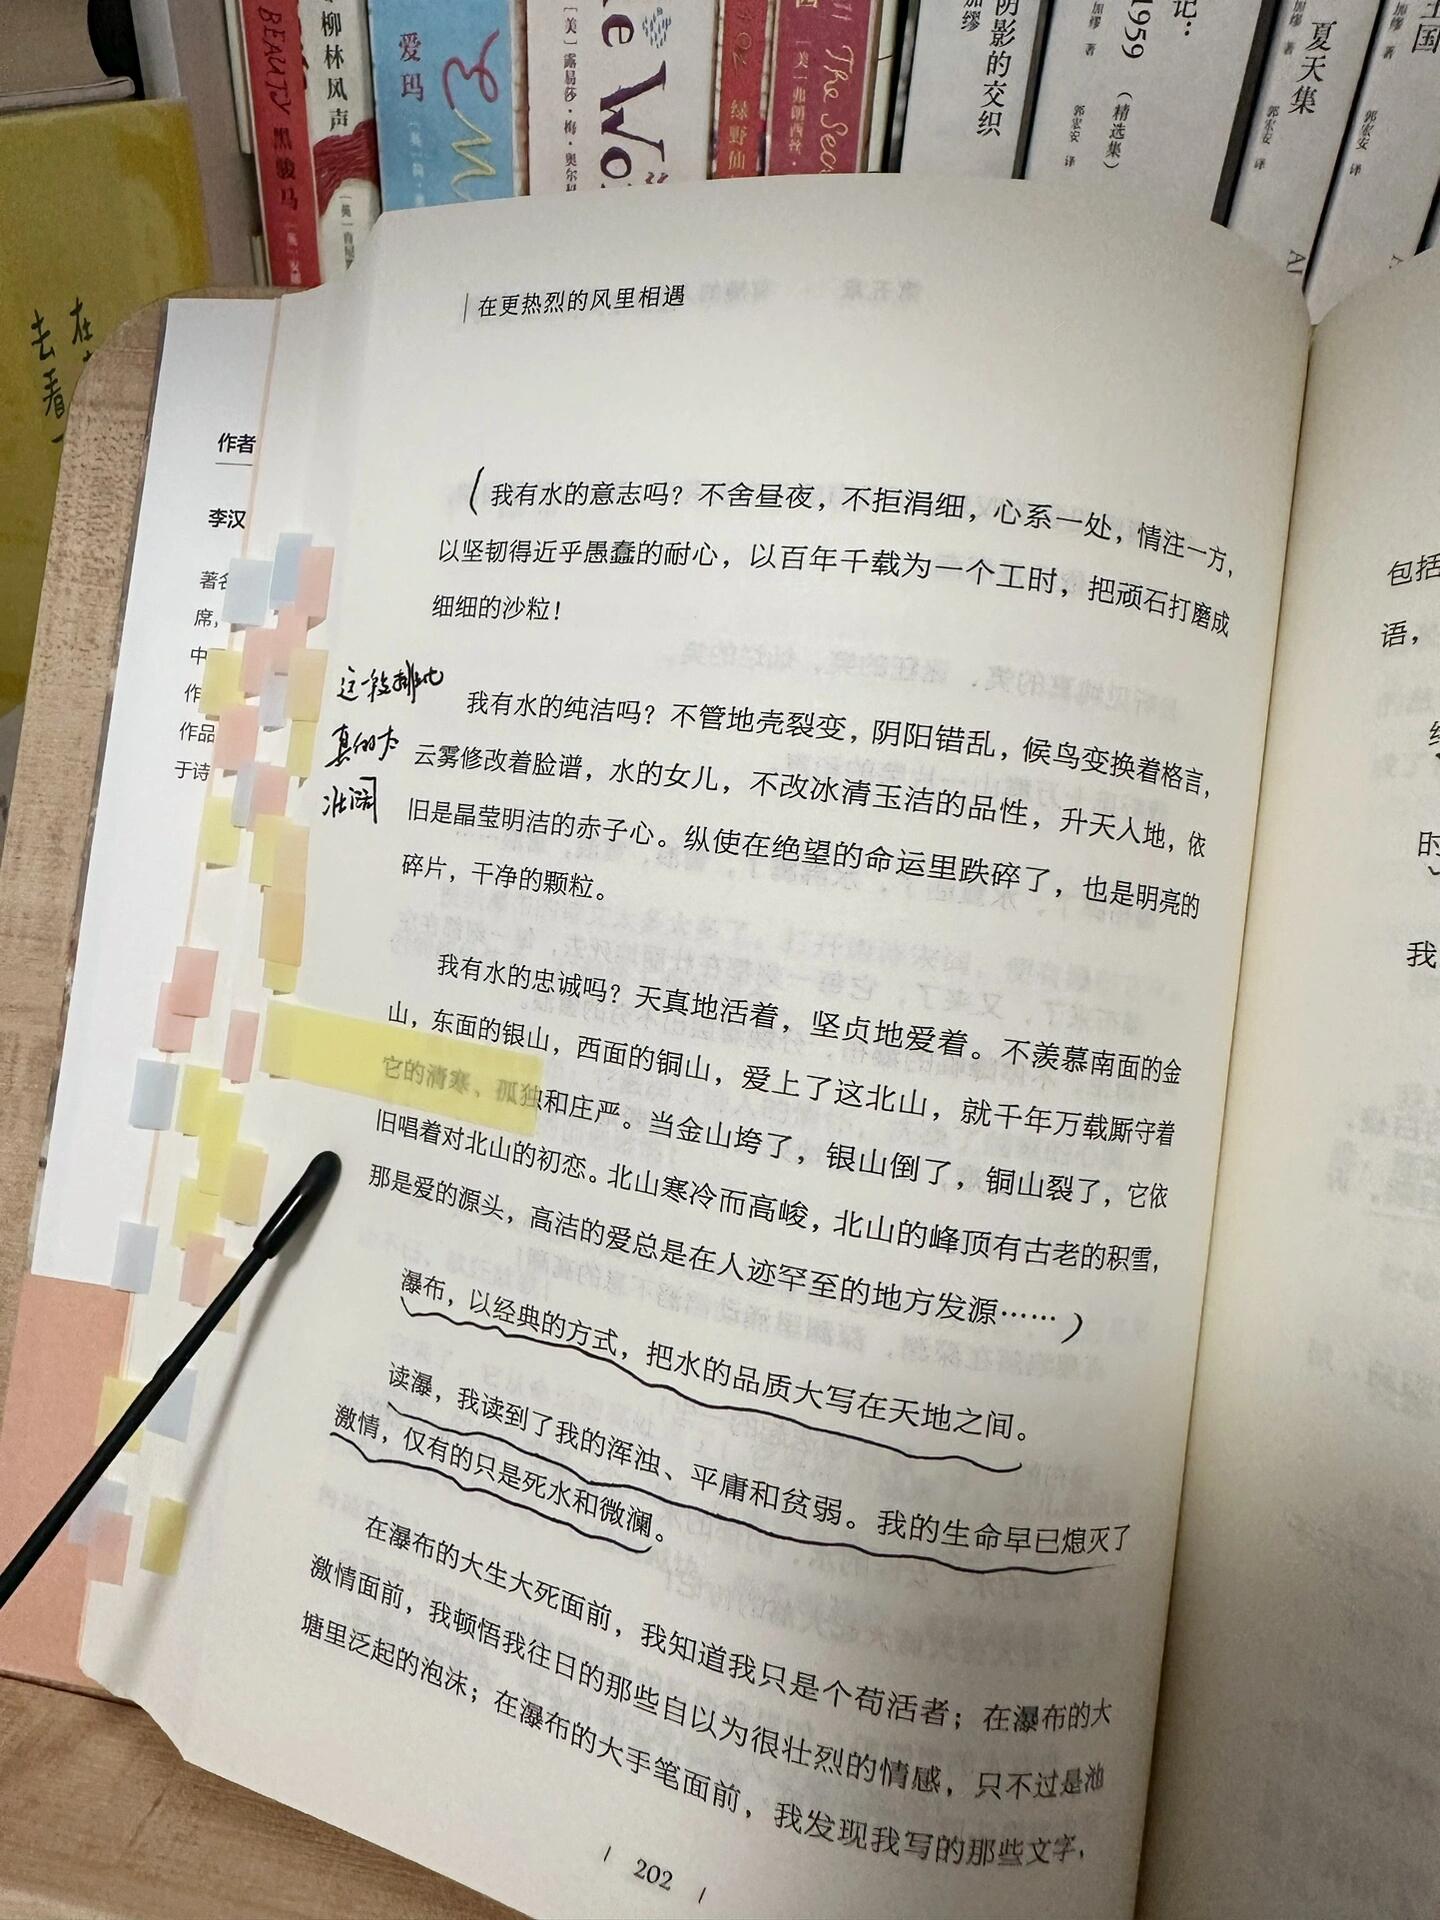 BEAUTY 黑骏马
柳林风声
爱玛
[美]露易莎·梅·奥尔科
绿野仙
The Secr
[美]弗朗西答·
阴影的交织
加缪
记：
1959
（精选集）
加缪 著
郭宏安 译
夏天集
加缪 著
郭宏安 译
王国
加缪 著
郭宏安 译
在
去看
作者
李汉
著名
席，
中
作
作品
于诗
在更热烈的风里相遇
我有水的意志吗？不舍昼夜，不拒涓细，心系一处，情注一方，
以坚韧得近乎愚蠢的耐心，以百年千载为一个工时，把顽石打磨成
细细的沙粒！
这一段排比
真的太
壮阔
我有水的纯洁吗？不管地壳裂变，阴阳错乱，候鸟变换着格言，
云雾修改着脸谱，水的女儿，不改冰清玉洁的品性，升天入地，依
旧是晶莹明洁的赤子心。纵使在绝望的命运里跌碎了，也是明亮的
碎片，干净的颗粒。
我有水的忠诚吗？天真地活着，坚贞地爱着。不羡慕南面的金
山，东面的银山，西面的铜山，爱上了这北山，就千年万载厮守着
它的清寒、孤独和庄严。当金山垮了，银山倒了，铜山裂了，它依
旧唱着对北山的初恋。北山寒冷而高峻，北山的峰顶有古老的积雪，
那是爱的源头，高洁的爱总是在人迹罕至的地方发源……
瀑布，以经典的方式，把水的品质大写在天地之间。
读瀑，我读到了我的浑浊、平庸和贫弱。我的生命早已熄灭了
激情，仅有的只是死水和微澜。
在瀑布的大生大死面前，我知道我只是个苟活者；在瀑布的大
激情面前，我顿悟我往日的那些自以为很壮烈的情感，只不过是池
塘里泛起的泡沫；在瀑布的大手笔面前，我发现我写的那些文字，
202
包括
语，
时
我